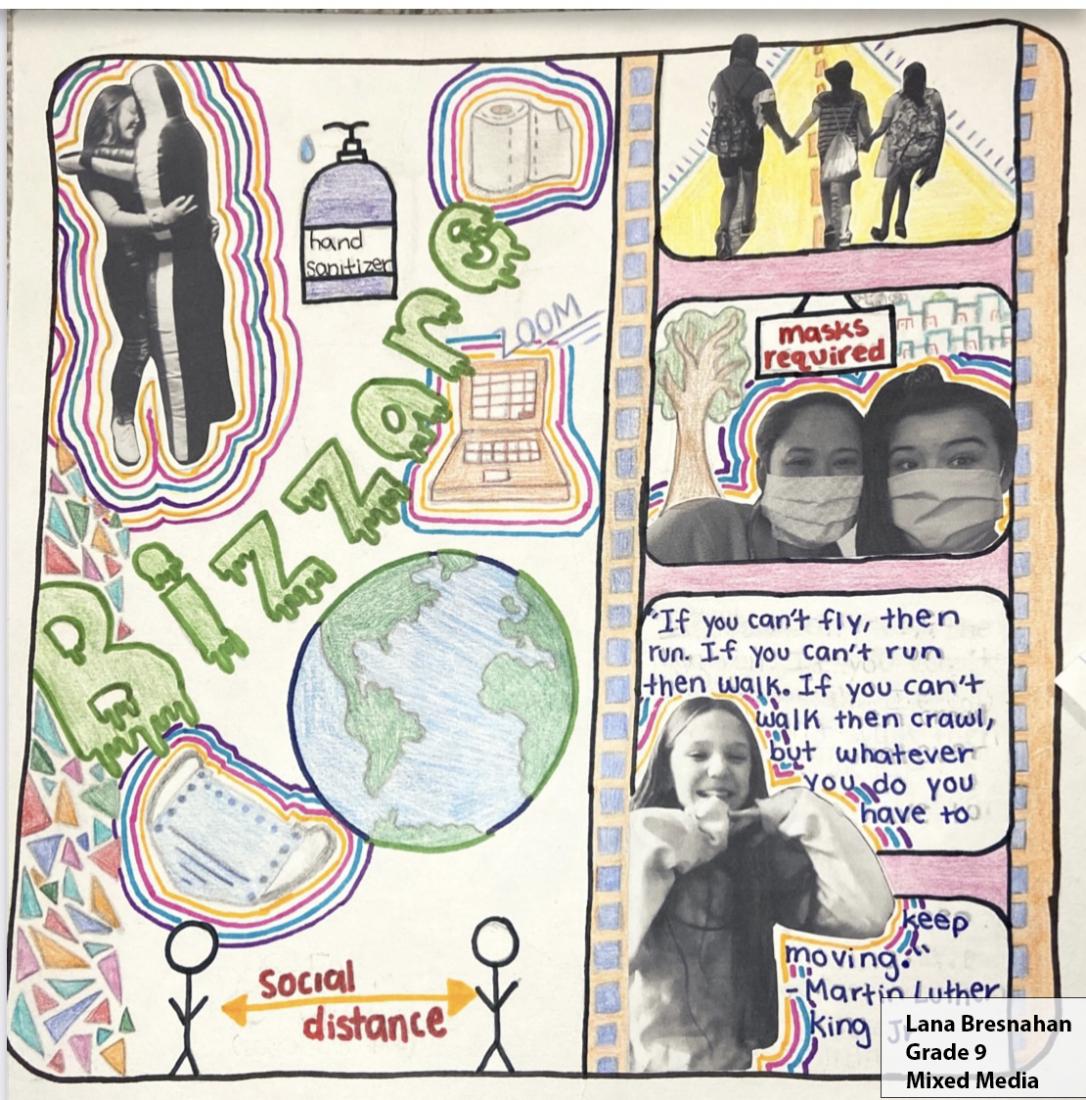 hand
sanitizer
ZOOM
Bizzare
social
distance
masks
required
"If you can't fly, then
run. If you can't run
then walk. If you can't
walk then crawl,
but whatever
you do you
have to
keep
moving."
- Martin Luther
king Jr
Lana Bresnahan
Grade 9
Mixed Media